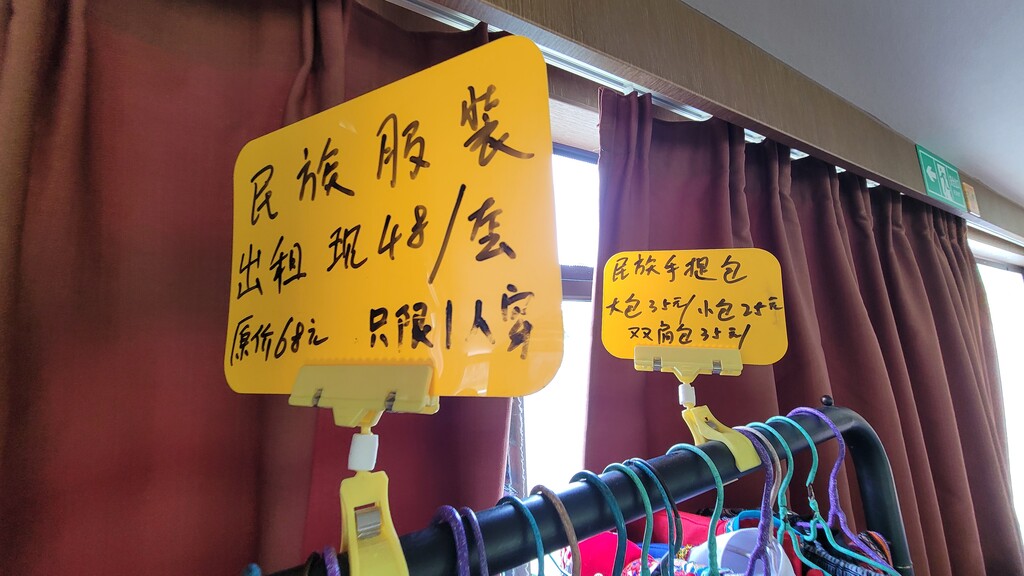 民族服装
出租现48/套
原价68元 只限1人穿
民族手提包
大包35元/小包25元
双肩包35元/